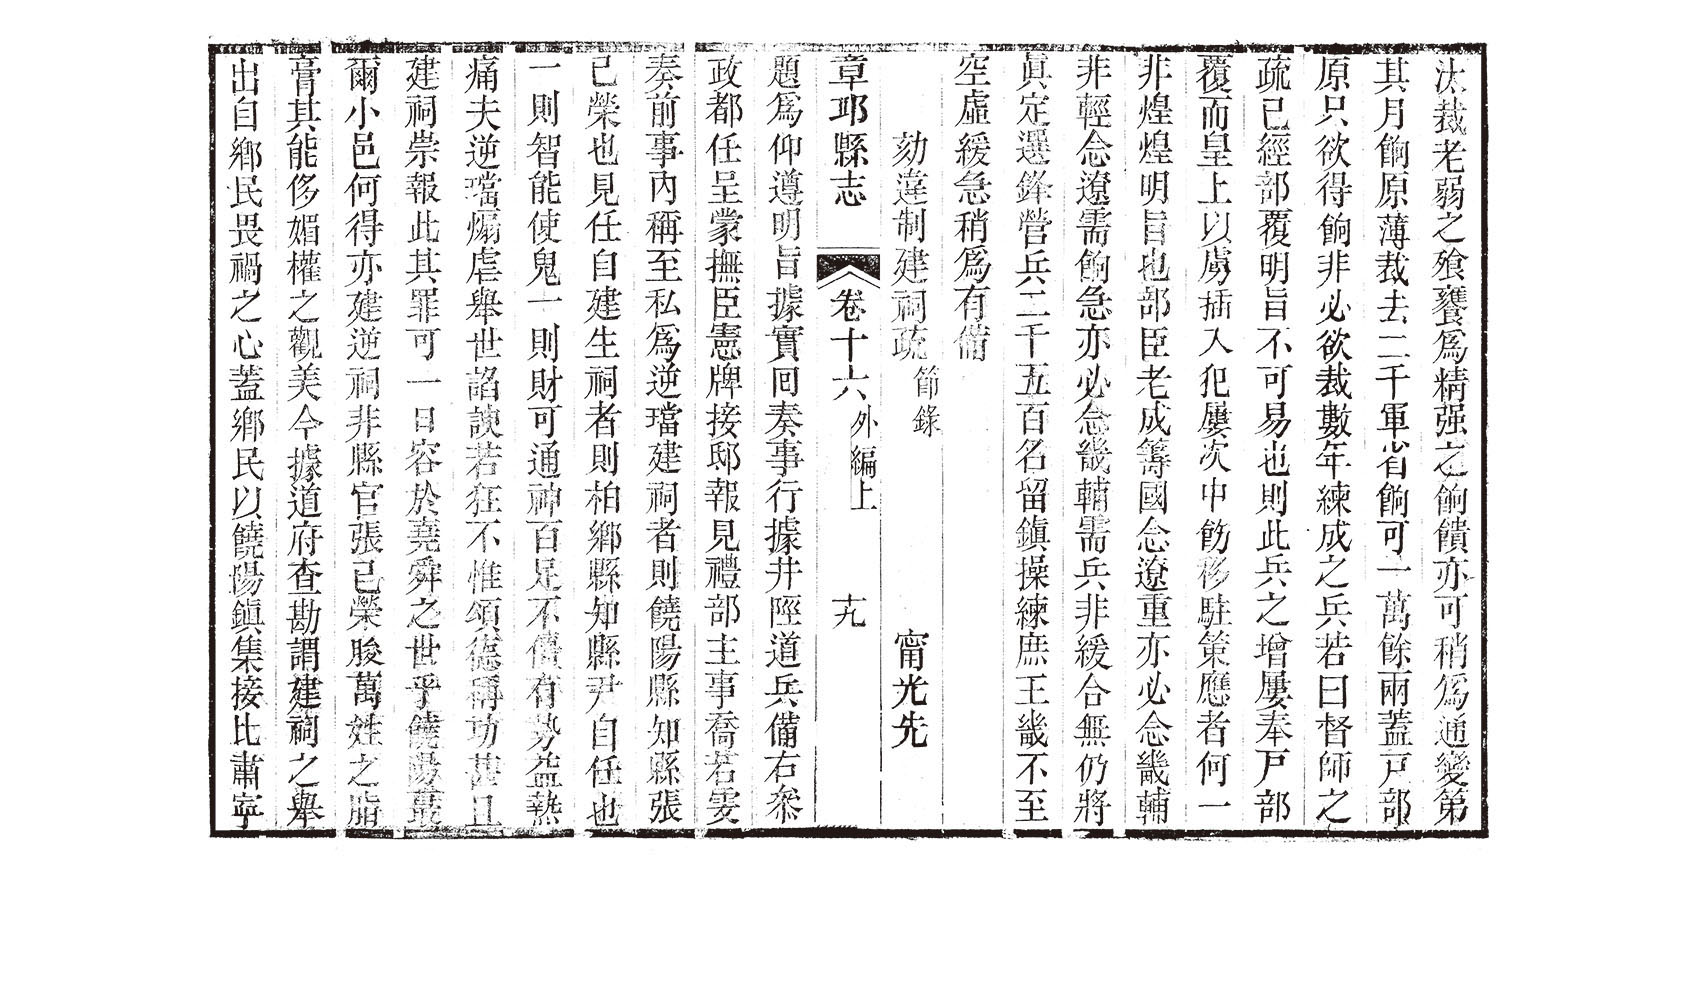 汰裁老弱之飱饔爲精强之餉饋亦可稍爲通變第
其月餉原薄裁去二千軍省餉可一萬餘兩蓋戸部
原只欲得餉非必欲裁數年練成之兵若曰督師之
疏已經部覆明旨不可易也則此兵之增屢奉戸部
覆而皇上以虜插入犯屢次申飭移駐策應者何一
非煌煌明旨也部臣老成籌國念遼重亦必念畿輔
非輕念遼需餉急亦必念畿輔需兵非緩合無仍將
眞定選鋒營兵二千五百名留鎮操練庶王畿不至
空虛緩急稍爲有備
劾違制建祠疏節錄 甯光先
章邱縣志 卷十六外編上 十九
題爲仰遵明旨據實囘奏事行據井陘道兵備右叅
政都任呈蒙撫臣憲牌接邸報見禮部主事喬若雯
奏前事內稱至私爲逆璫建祠者則饒陽縣知縣張
已榮也見任自建生祠者則柏鄉縣知縣尹自任也
一則智能使鬼一則財可通神百足不僨有勢益熱
痛夫逆璫煽虐舉世諂諛若狂不惟頌德稱功甚且
建祠崇報此其罪可一日容於堯舜之世乎饒陽蕞
爾小邑何得亦建逆祠非縣官張已榮朘萬姓之脂
膏其能侈媚權之觀美今據道府查勘謂建祠之舉
出自鄉民畏禍之心蓋鄉民以饒陽鎮集接比肅寧